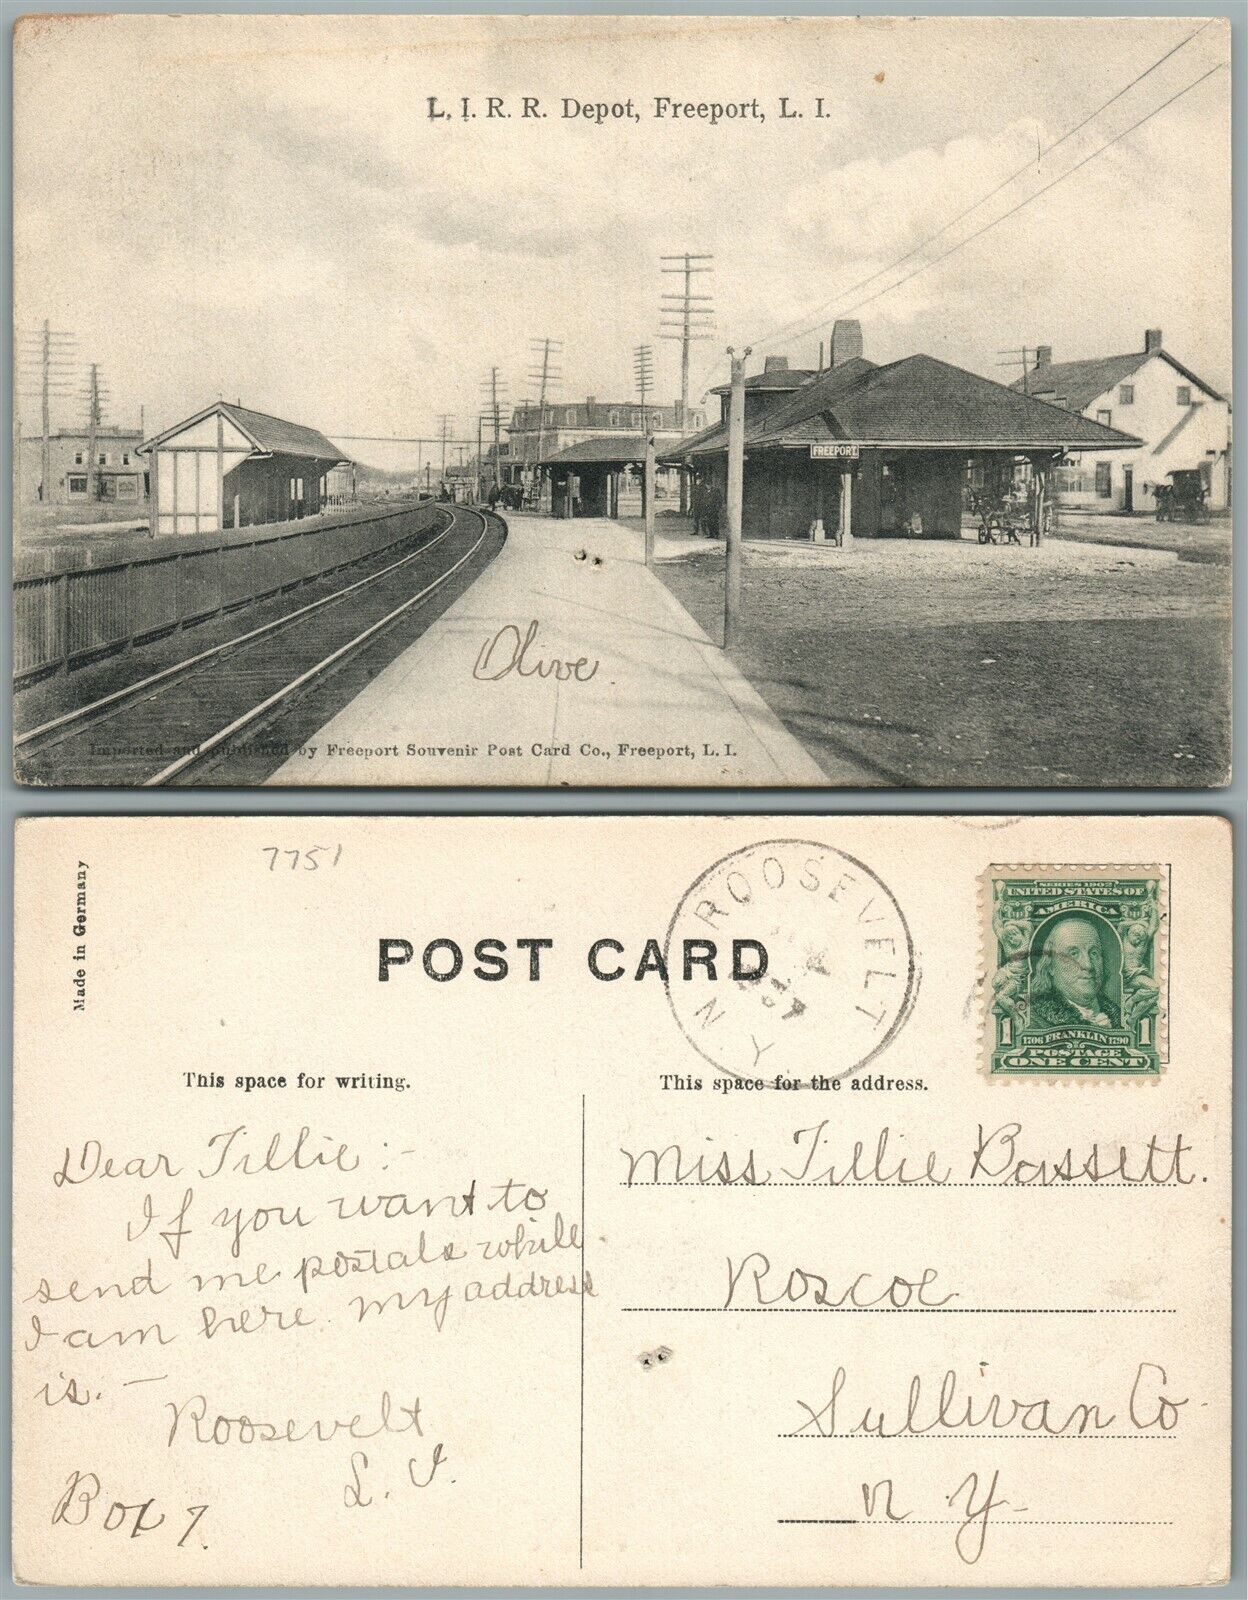 L. I. R. R. Depot, Freeport, L. I.
FREEPORT.
Olive.
Imported and published by Freeport Souvenir Post Card Co., Freeport, L. I.
Made in Germany
7751
POST CARD
ROOSEVELT
N Y
SERIES 1902
UNITED STATES OF
AMERICA
1 1706 FRANKLIN 1790 1
POSTAGE
ONE CENT
This space for writing.
This space for the address.
Dear Tillie:-
If you want to
send me postals while
I am here. my address
is. -
Roosevelt
L. I.
Box 7.
Miss Tillie Bassett.
Roscoe
Sullivan Co
N Y-